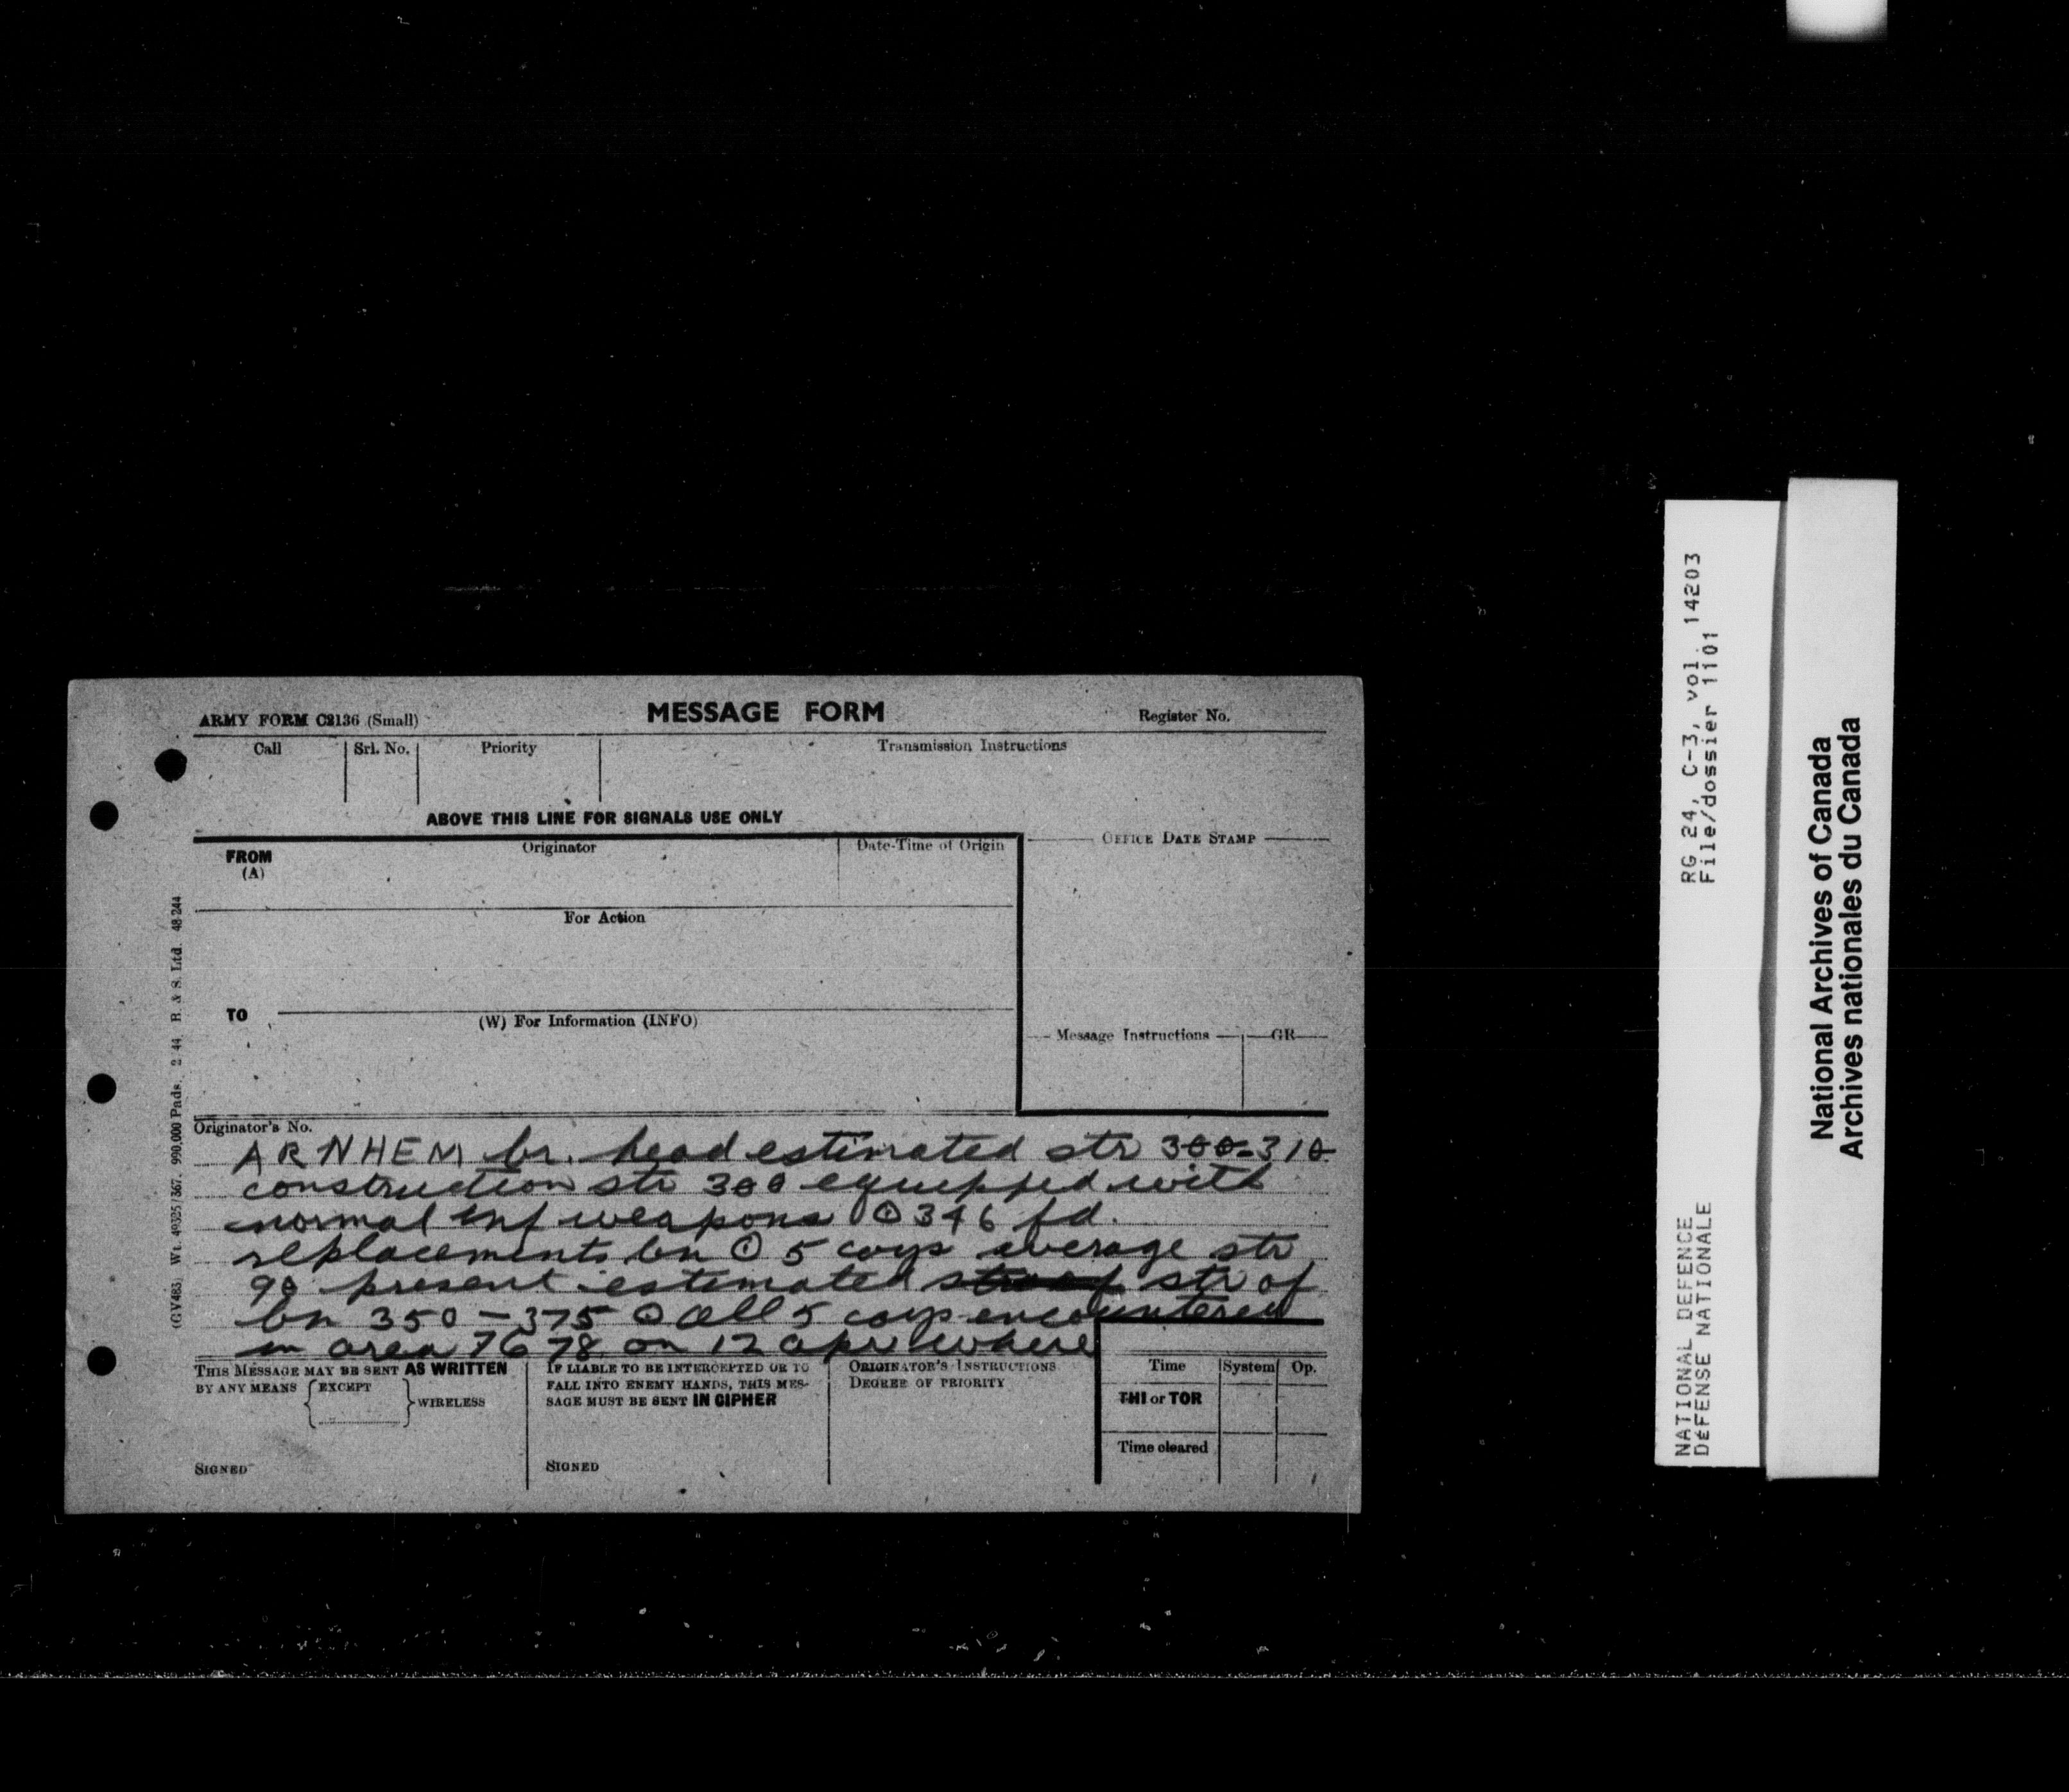 ARMY FORM C2136 (Small)
MESSAGE FORM
Register No.
Call
Srl. No.
Priority
Transmission Instructions
ABOVE THIS LINE FOR SIGNALS USE ONLY
FROM
(A)
Originator
Date-Time of Origin
OFFICE DATE STAMP
For Action
TO
(W) For Information (INFO)
Message Instructions
GR
Originator's No.
ARNHEM br. head estimated str 300-310
construction str 300 equipped with
normal inf weapons ⊙ 346 fd.
replacements bn ⊙ 5 coys average str
90 present estimated str of
bn 350 - 375 ⊙ all 5 coys encountered
in area 7678 on 12 apr where
THIS MESSAGE MAY BE SENT AS WRITTEN
BY ANY MEANS { EXCEPT } WIRELESS
SIGNED
IF LIABLE TO BE INTERCEPTED OR TO
FALL INTO ENEMY HANDS, THIS MES-
SAGE MUST BE SENT IN CIPHER
SIGNED
ORIGINATOR'S INSTRUCTIONS
DEGREE OF PRIORITY
Time
System
Op.
THI or TOR
Time cleared
(GV483) Wt. 49325/367. 990,000 Pads. 2/44. B. & S. Ltd. 48-244
NATIONAL DEFENCE RG 24, C-3, vol. 14203
DÉFENSE NATIONALE File/dossier 1101
National Archives of Canada
Archives nationales du Canada